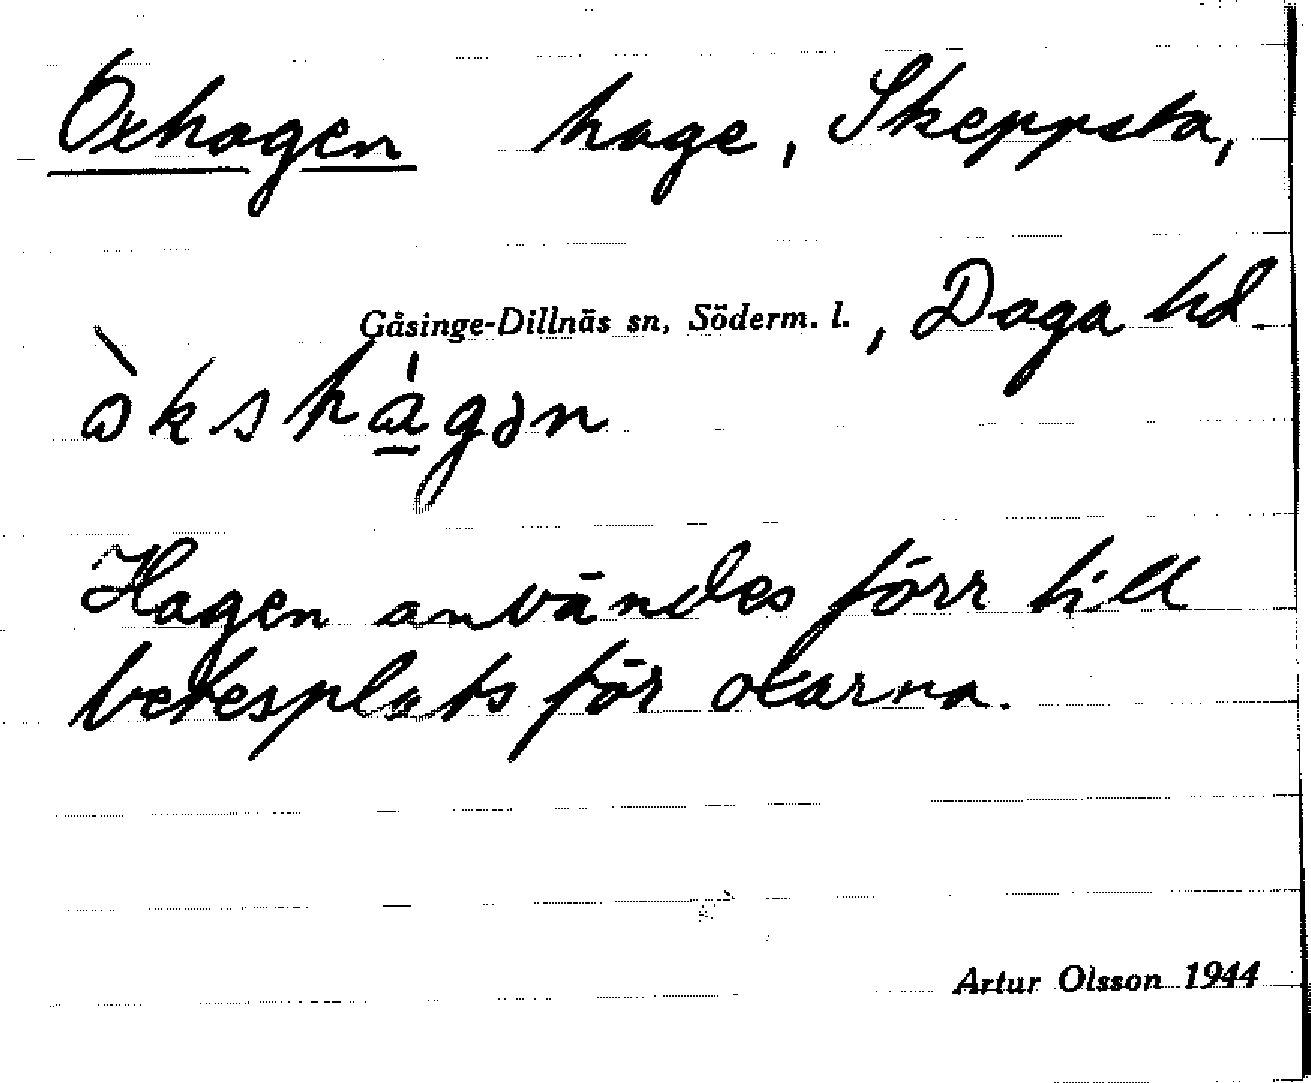 Oxhagen hage, Skeppsta,
Gåsinge-Dillnäs sn, Söderm. l., Daga hd
ò̀kshá̲gən
Hagen användes förr till
betesplats för oxarna.
Artur Olsson 1944